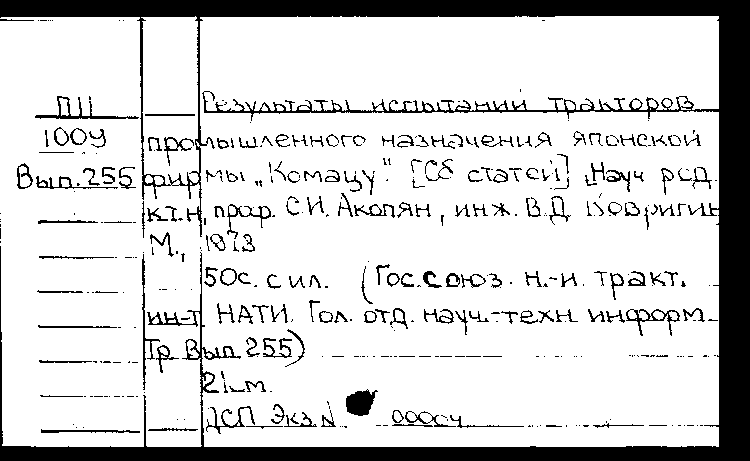 П11 Результаты испытаний тракторов
100У промышленного назначения японской
Вып.255 фирмы „Комацу". [Сб статей] Науч ред.
к.т.н, проф. С.И. Акопян, инж. В.Д. Ковригин
М., 1973
50с. с ил. (Гос.союз. н.-и. тракт.
ин-т НАТИ. Гол. отд. науч.-техн информ.
Тр Вып 255)
21 м.
ДСП Экз.N 00004